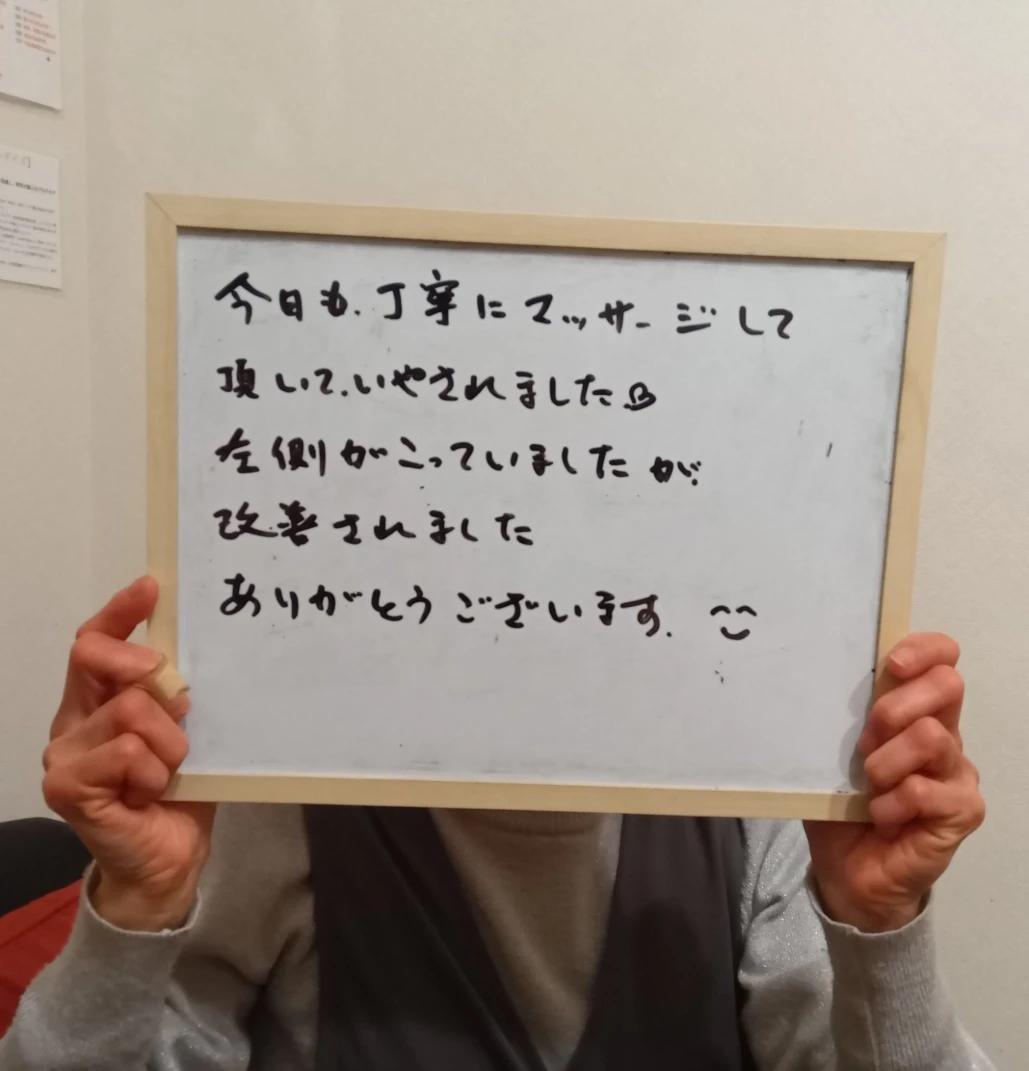 今日も、丁寧にマッサージして
頂いて、いやされました
左側がこっていましたが、
改善されました
ありがとうございます。